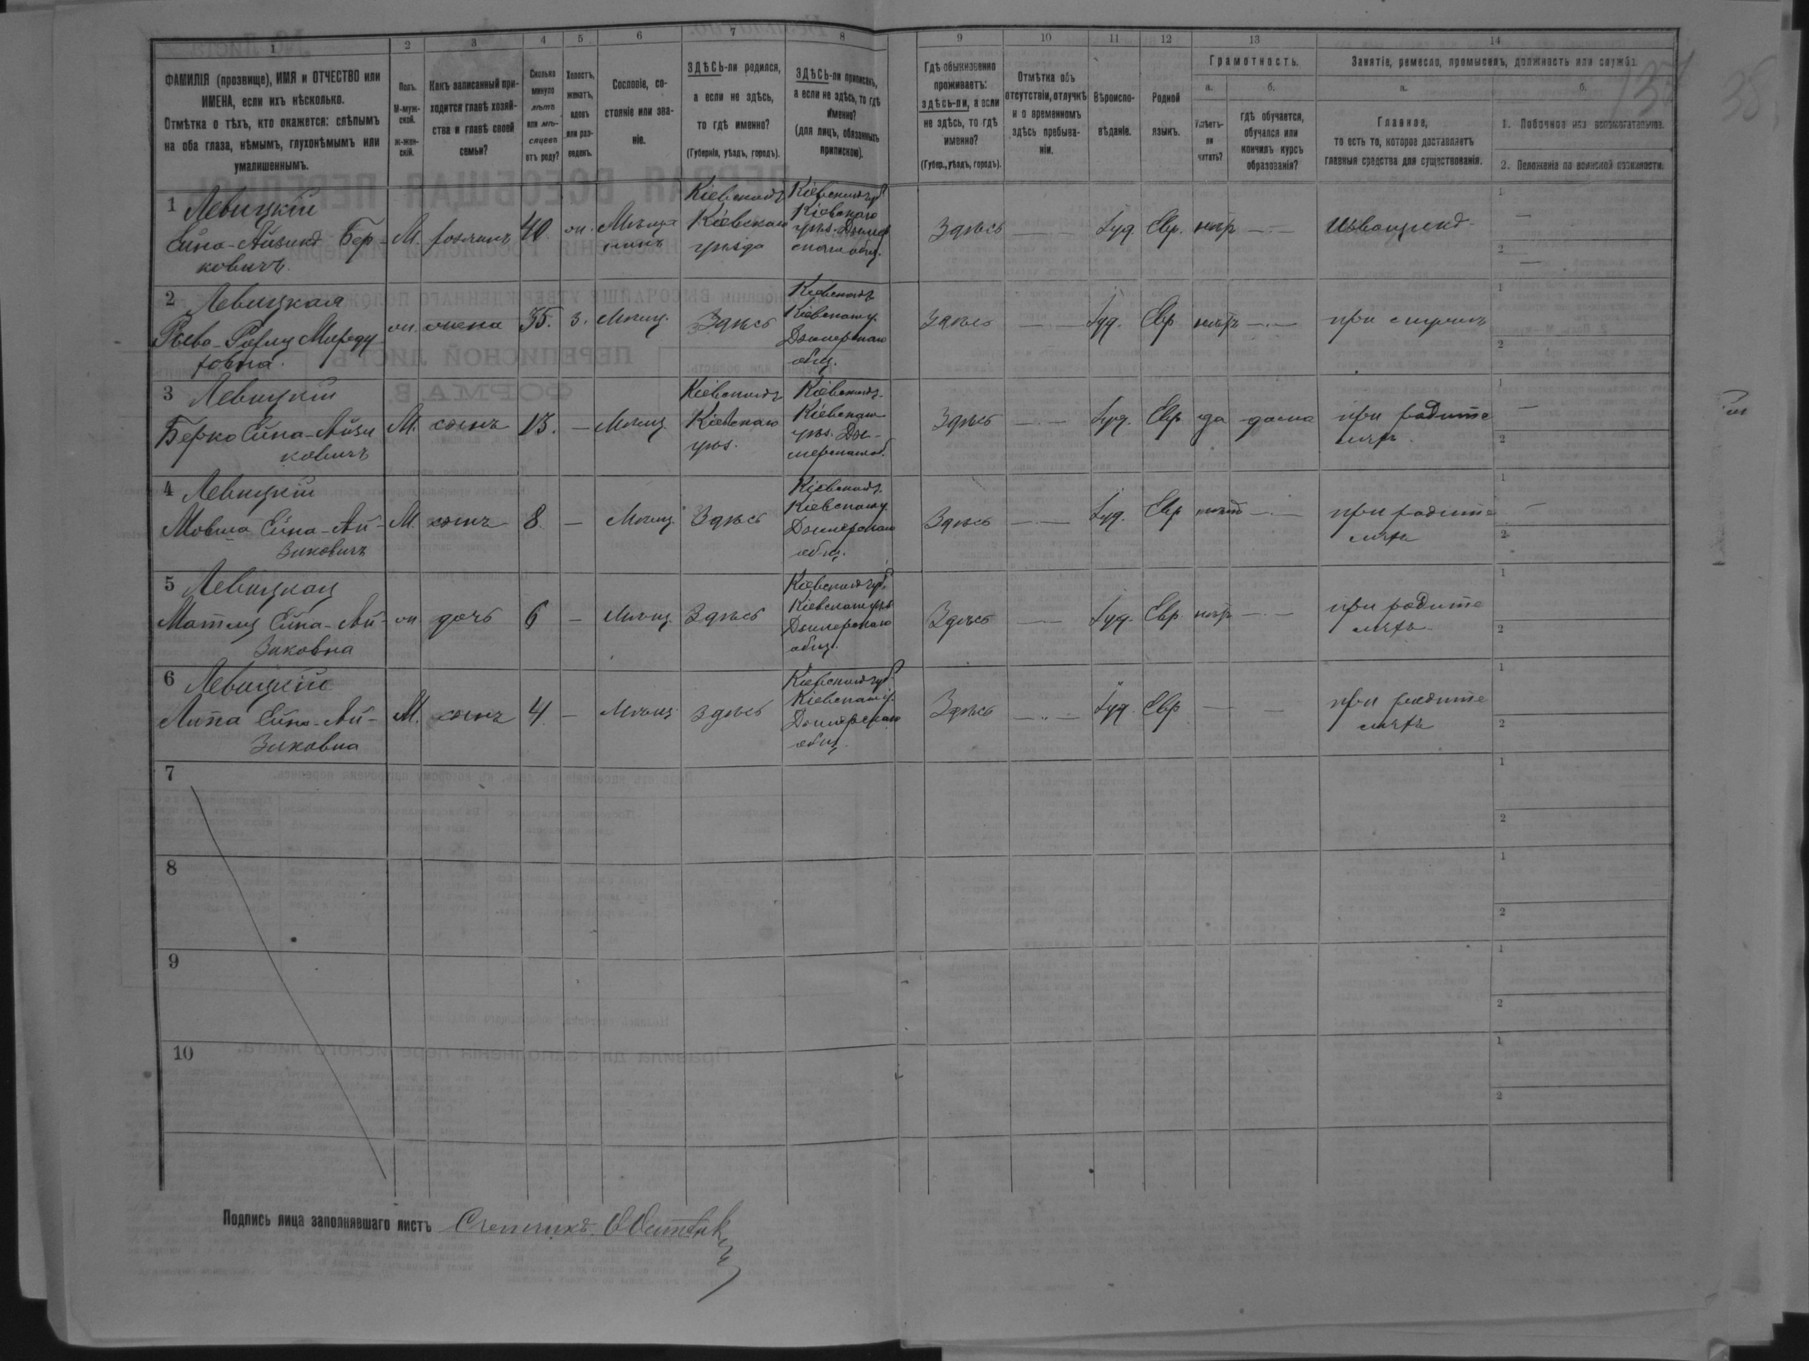 1 2 3 4 5 6 7 8 9 10 11 12 13 14
ФАМИЛІЯ (прозвище), ИМЯ и ОТЧЕСТВО или
ИМЕНА, если ихъ нѣсколько.
Отмѣтка о тѣхъ, кто окажется: слѣпымъ
на оба глаза, нѣмымъ, глухонѣмымъ или
умалишеннымъ.
Полъ.
М-муж-
ской.
ж-жен-
скій.
Какъ записанный при-
ходится главѣ хозяй-
ства и главѣ своей
семьи?
Сколько
минуло
лѣтъ
или мѣ-
сяцевъ
отъ роду?
Холостъ,
женатъ,
вдовъ
или раз-
веденъ.
Сословіе, со-
стояніе или зва-
ніе.
ЗДѢСЬ-ли родился,
а если не здѣсь,
то гдѣ именно?
(Губернія, уѣздъ, городъ).
ЗДѢСЬ-ли приписанъ,
а если не здѣсь, то гдѣ
именно?
(для лицъ, обязанныхъ
припискою).
Гдѣ обыкновенно
проживаетъ:
здѣсь-ли, а если
не здѣсь, то гдѣ
именно?
(Губер., уѣздъ, городъ).
Отмѣтка объ
отсутствіи, отлучкѣ
и о временномъ
здѣсь пребыва-
ніи.
Вѣроиспо-
вѣданіе.
Родной
языкъ.
Грамотность.
а.
Умѣетъ-
ли
читать?
б.
гдѣ обучается,
обучался или
кончилъ курсъ
образованія?
Занятіе, ремесло, промыселъ, должность или служба.
а.
Главное,
то есть то, которое доставляетъ
главныя средства для существованія.
б.
1. Побочное или вспомогательное.
2. Положеніе по воинской повинности.
1 Левицкій
Сина-Айзикъ Бер-
ковичъ.
М. хозяинъ 40 жн. Мѣща
нинъ
Кіевской г.
Кіевскаго
уѣзда
Кіевской губ
Кіевскаго
уѣз. Дымер
скаго общ.
Здѣсь — Іуд Евр. нѣтъ — извощикъ
2 Левицкая
жн. жена 35. з. Мѣщ. Здѣсь
Кіевской г.
Кіевскаго у.
Дымерскаго
общ.
Здѣсь — Іуд. Евр нѣтъ — при мужѣ
3 Левицкій
Берко Сина-Айзи
ковичъ
М. сынъ 13. — Мѣщ
Кіевской г.
Кіевскаго
уѣз.
Кіевской г.
Кіевскаго
уѣз. Ды-
мерскаго об.
Здѣсь — Іуд. Евр да дома при родите
ляхъ.
4 Левицкій
Мовша Сина-Ай-
зиковичъ
М. сынъ 8. — Мѣщ. Здѣсь
Кіевской г.
Кіевскаго у.
Дымерскаго
общ.
Здѣсь — Іуд. Евр нѣтъ — при родите
ляхъ
5 Левицкая
Сина-Ай-
зиковна
жн дочь 6 — Мѣщ. Здѣсь
Кіевской губ.
Кіевскаго уѣз
Дымерскаго
общ.
Здѣсь — Іуд. Евр. нѣтъ — при родите
ляхъ
6 Левицкій
Липа Сина-Ай-
зиковна
М. сынъ 4. — Мѣщ. здѣсь
Кіевской губ
Кіевскаго у.
Дымерскаго
общ.
Здѣсь — Іуд. Евр. — — при родите
ляхъ
7
8
9
10
Подпись лица заполнявшаго листъ Счетчикъ